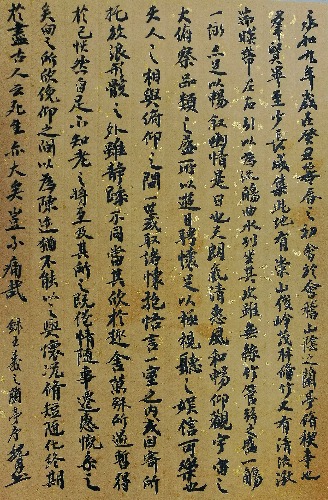 永和九年歲在癸丑暮春之初會於會稽山陰之蘭亭脩稧事也
羣賢畢至少長咸集此地有崇山峻嶺茂林脩竹又有清流激
湍暎帶左右引以為流觴曲水列坐其次雖無絲竹管弦之盛一觴
一詠亦足以暢敘幽情是日也天朗氣清惠風和暢仰觀宇宙之
大俯察品類之盛所以遊目騁懷足以極視聽之娛信可樂也
夫人之相與俯仰之間一世或取諸懷抱悟言一室之內或因寄所
托放浪形骸之外雖静躁不同當其欣於趣舍萬殊所遇暫得
於己怏然自足不知老之將至及其所之既倦情隨事遷感慨系之
矣向之所欣俛仰之間以為陳迹猶不能以之興懷况脩短隨化終期
於盡古人云死生亦大矣豈不痛哉 錄王羲之蘭亭序 魏